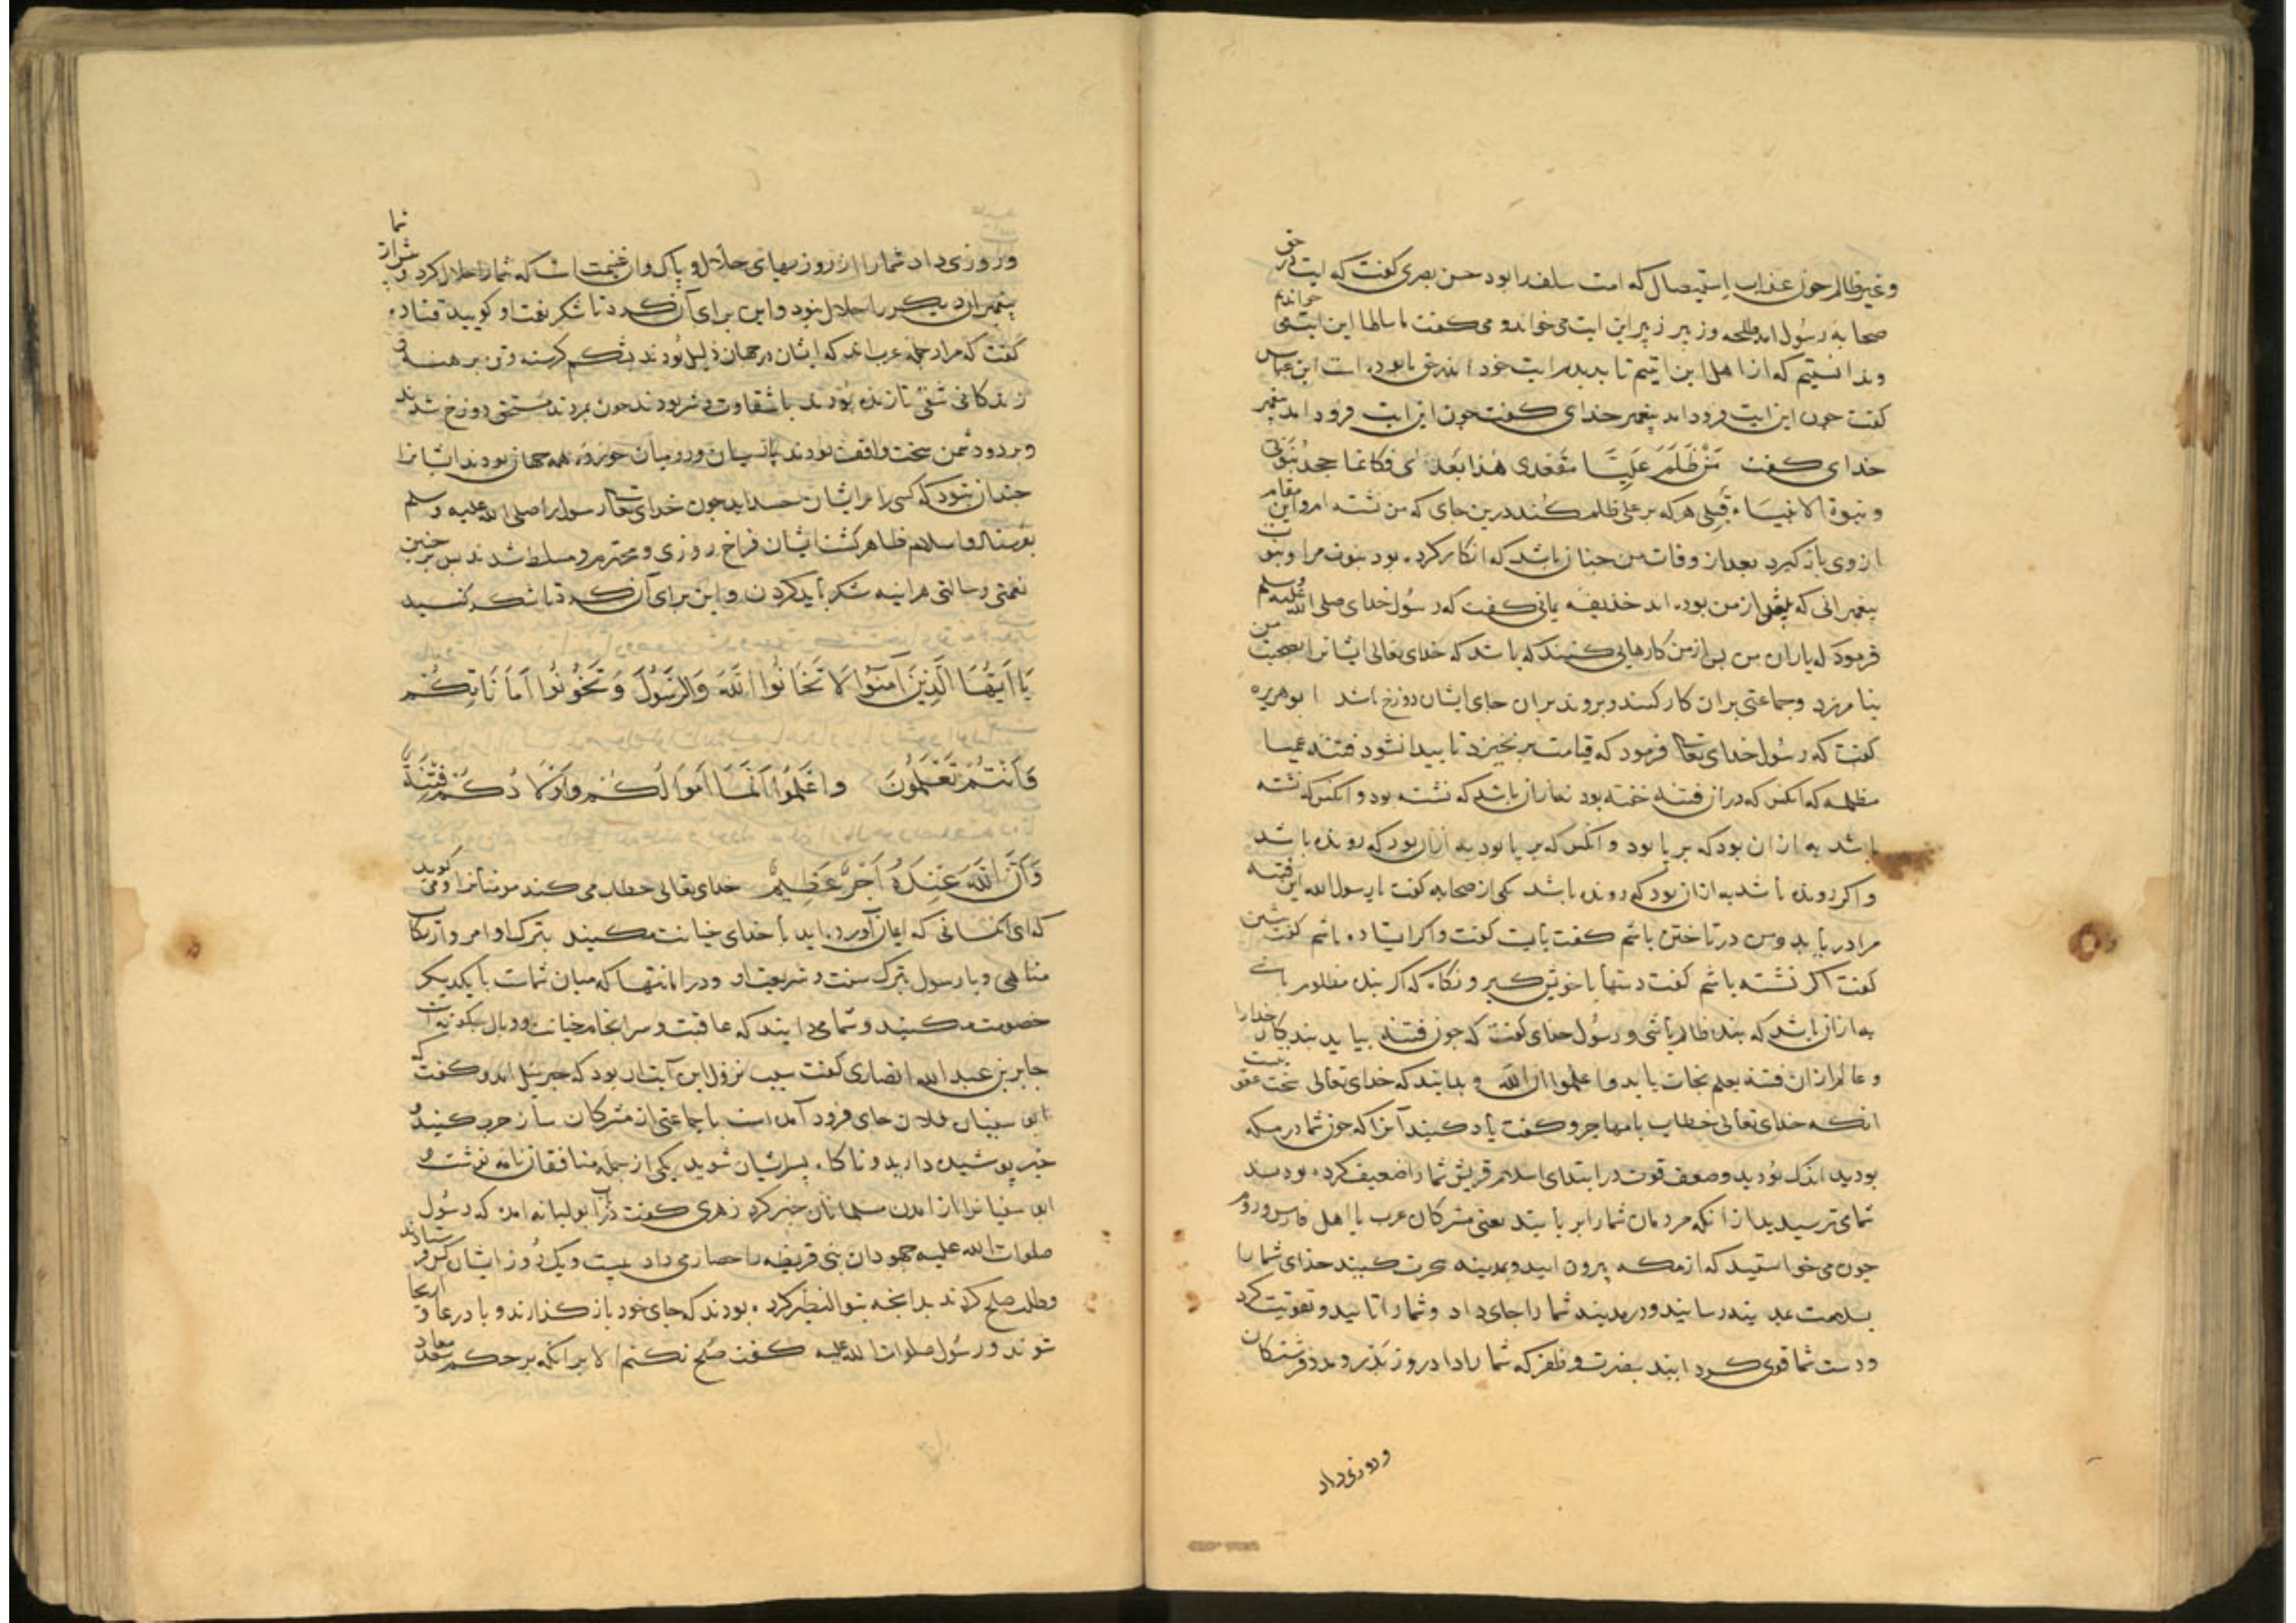 وغیر ظالم چون عذاب استیصال که امت سلف را بود حسن بصری کفت که این ایت در حق
صحابه رسول امد طلحه و زبیر زبیر این ایت می خواند و می کفت ما سالها این ایت می خواندیم
و ندانستیم که از اهل این ایتیم تا بدیدم ایت خود اندر حق ما بوده است ابن عباس
کفت چون این ایت فرود امد پیغمبر خدای کفت چون این ایت فرود امد پیغمبر
خدای کفت مَنْ ظَلَمَ عَلِیًّا مقعدی هذا بعد فکانما جحد نبوتی
و نبوة الانبیاء قبلی هرکه بر علی ظلم کند درین جای که من نشسته ام و این مقام
از وی باز کیرد بعد از وفات من چنان باشد که انکار کرده بود نبوت مرا و نبوت
پیغمبرانی که پیش از من بوده اند حذیفه یمانی کفت که رسول خدای صلی الله علیه وسلم
فرمود که یاران من پس از من کارهایی کنند که باشد که خدای تعالی ایشانرا بصحبت من
بیامرزد و جماعتی بران کار کنند و بروند بران جای ایشان دوزخ باشد ابوهریره
کفت که رسول خدای تعالی فرمود که قیامت برنخیزد تا پیدا نشود فتنه عمیا
مظلمه که انکس که دران فتنه خفته بود به ازان باشد که نشسته بود و انکس که نشسته
باشد به ازان بود که بر پا بود و انکس که بر پا بود به ازان بود که رونده باشد
و اکر رونده باشد به ازان بود که دونده باشد یکی از صحابه کفت یا رسول الله این فتنه
مرا دریابد و من در تاختن باشم کفت بایست کفت و اکر ایستاده باشم کفت بنشین
کفت اکر نشسته باشم کفت دستها با خویش کیر و نکاه که اکر بنده مظلوم باشی
به ازان باشد که بنده ظالم باشی و رسول خدای کفت که چون فتنه بیاید بندکان خدارا
و عالم ازان فتنه بعلم نجات یابد واعلموا ان الله و بدانید که خدای تعالی سخت عقوبت
انکه خدای تعالی خطاب با مهاجر و کفت یاد کنید آنرا که چون شما در مکه
بودید اندک بودید و ضعف قوت در ابتدای اسلام قریش شما را ضعیف کرده بودند
شما می ترسیدید از انکه مردمان شما را بر بایند یعنی مشرکان عرب یا اهل فارس و روم
چون می خواستید که از مکه بیرون ایید و بمدینه هجرت کنید خدای شما را
بسلامت بمدینه رسانید و در مدینه شما را جای داد و شما را تایید و تقویت کرد
و دست شما قوی کردانید بنصرت و ظفر که شما را داد در روز بدر و مدد فرشتکان
و روزی داد
و روزی داد شما را از روزیهای حلال و پاک و ان غنیمت است که شما را حلال کرد و پیش از شما
پیغمبران دیکر را حلال نبود و این برای آن کرد تا شکر نعت او کویید قتاده
کفت که مراد جمله عرب اند که ایشان در جهان ذلیل بودند بشکم کرسنه و تن برهنه و در
زندکانی شقی تا زنده بودند با شقاوت و شر بودند چون بمردند مستحق دوزخ شدند
و بر دو دشمن سخت واقف بودند پارسیان و رومیان خوردۀ همه جهان بودند ایشانرا
چندان نبود که کسی را بر ایشان حسد اید چون خدای تعالی رسول را صلی الله علیه وسلم
بفرستاد و اسلام ظاهر کشت ایشان فراخ روزی و محترم و مسلط شدند پس بر چنین
نعمتی و حالتی هراینه شکر باید کردن و این برای آن کرد تا شکر کنید
یَا اَیُّهَا الَّذِینَ آمَنُوا لَا تَخُانُوا اللّٰهَ وَالرَّسُولَ وَ تَخُونُوا اَمَانَاتِکُمْ
وَاَنْتُمْ تَعْلَمُونَ وَاعْلَمُوا اَنَّمَا اَمْوَالُکُمْ وَاَوْلَادُکُمْ فِتْنَةٌ
وَاَنَّ اللّٰهَ عِنْدَهُ اَجْرٌ عَظِیمٌ خدای تعالی خطاب می کند مومنانرا و می کوید
که ای کسانی که ایمان آورده اید با خدای خیانت مکنید بترک اوامر و ارتکاب
مناهی و با رسول بترک سنت و شریعت او و در امانتها که میان شماست با یکدیکر
خصومت مکنید و شما می دانید که عاقبت و سرانجام خیانت و وبال چکونه است
جابر بن عبد الله انصاری کفت سبب نزول این آیت ان بود که جبرئیل امد و کفت که
ابو سفیان فلان جای فرود آمده است با جماعتی از مشرکان ساز حرب کنید و
خبر پوشیده دارید و ناکاه بسر ایشان شوید یکی از جمله منافقان نامه نوشت و
ابو سفیانرا از امدن مسلمانان خبر کرد زهری کفت در باب ابو لبابه امد که رسول
صلوات الله علیه جهودان بنی قریظه را حصار می داد بیست و یک روز ایشان کس فرستادند
و طلب صلح کردند بدانچه بنو النضیر کرده بودند که جای خود باز کذارند و با درعات و اریحا
شوند و رسول صلوات الله علیه کفت صلح نکنم الا بر انکه بر حکم سعد معاد